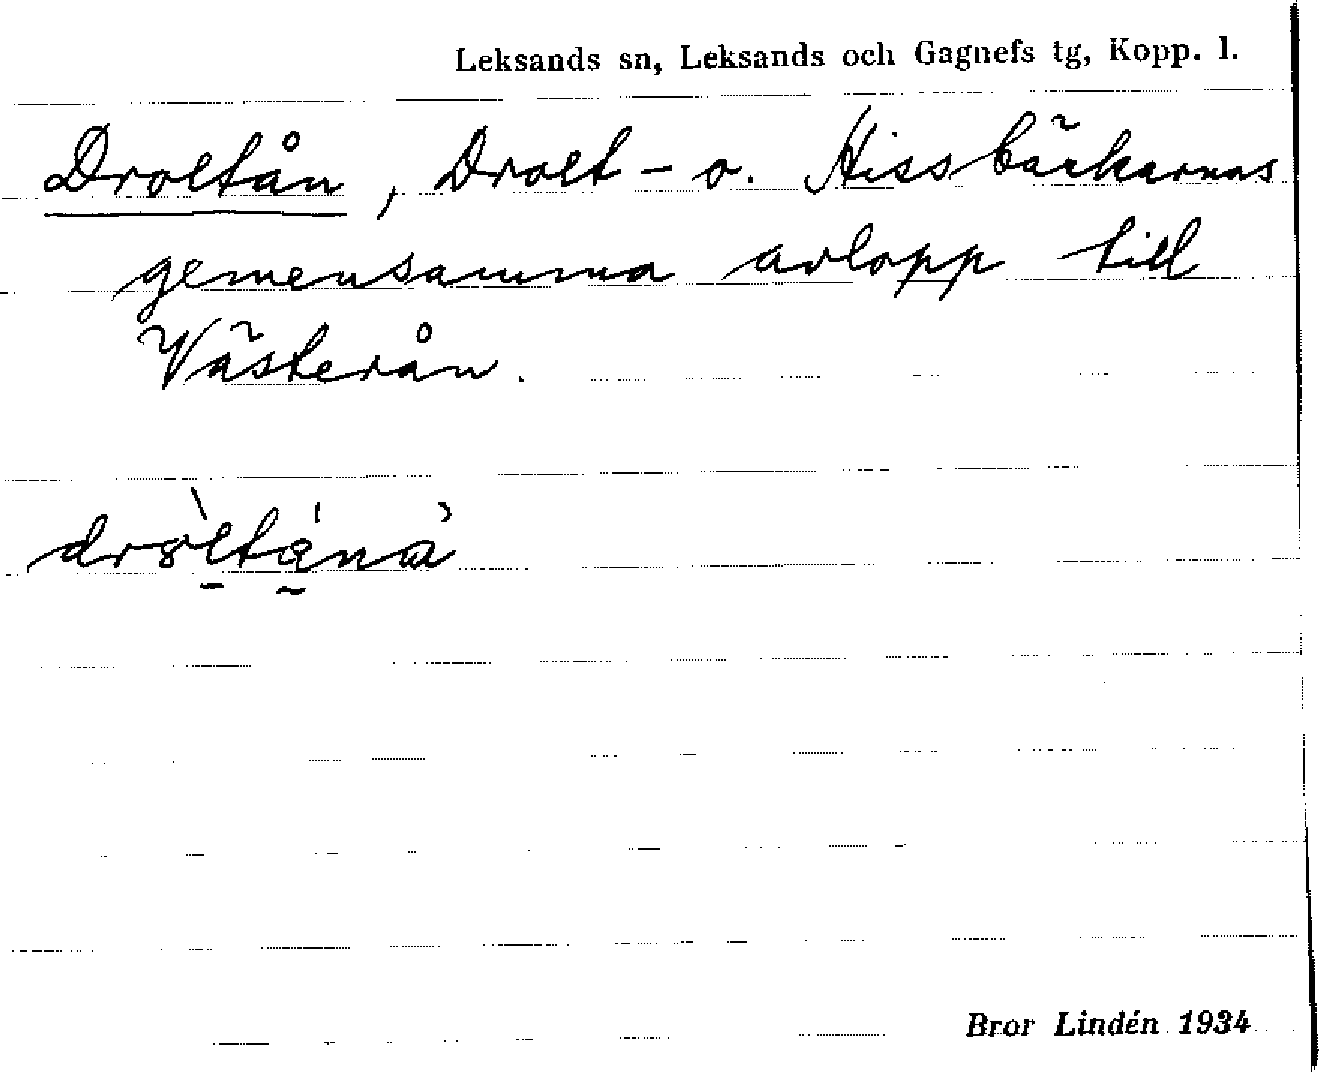 Leksands sn, Leksands och Gagnefs tg, Kopp. l.
Droltån, Drolt- o. Hissbäckarnas
gemensamma avlopp till
Västerån.
Bror Lindén 1934